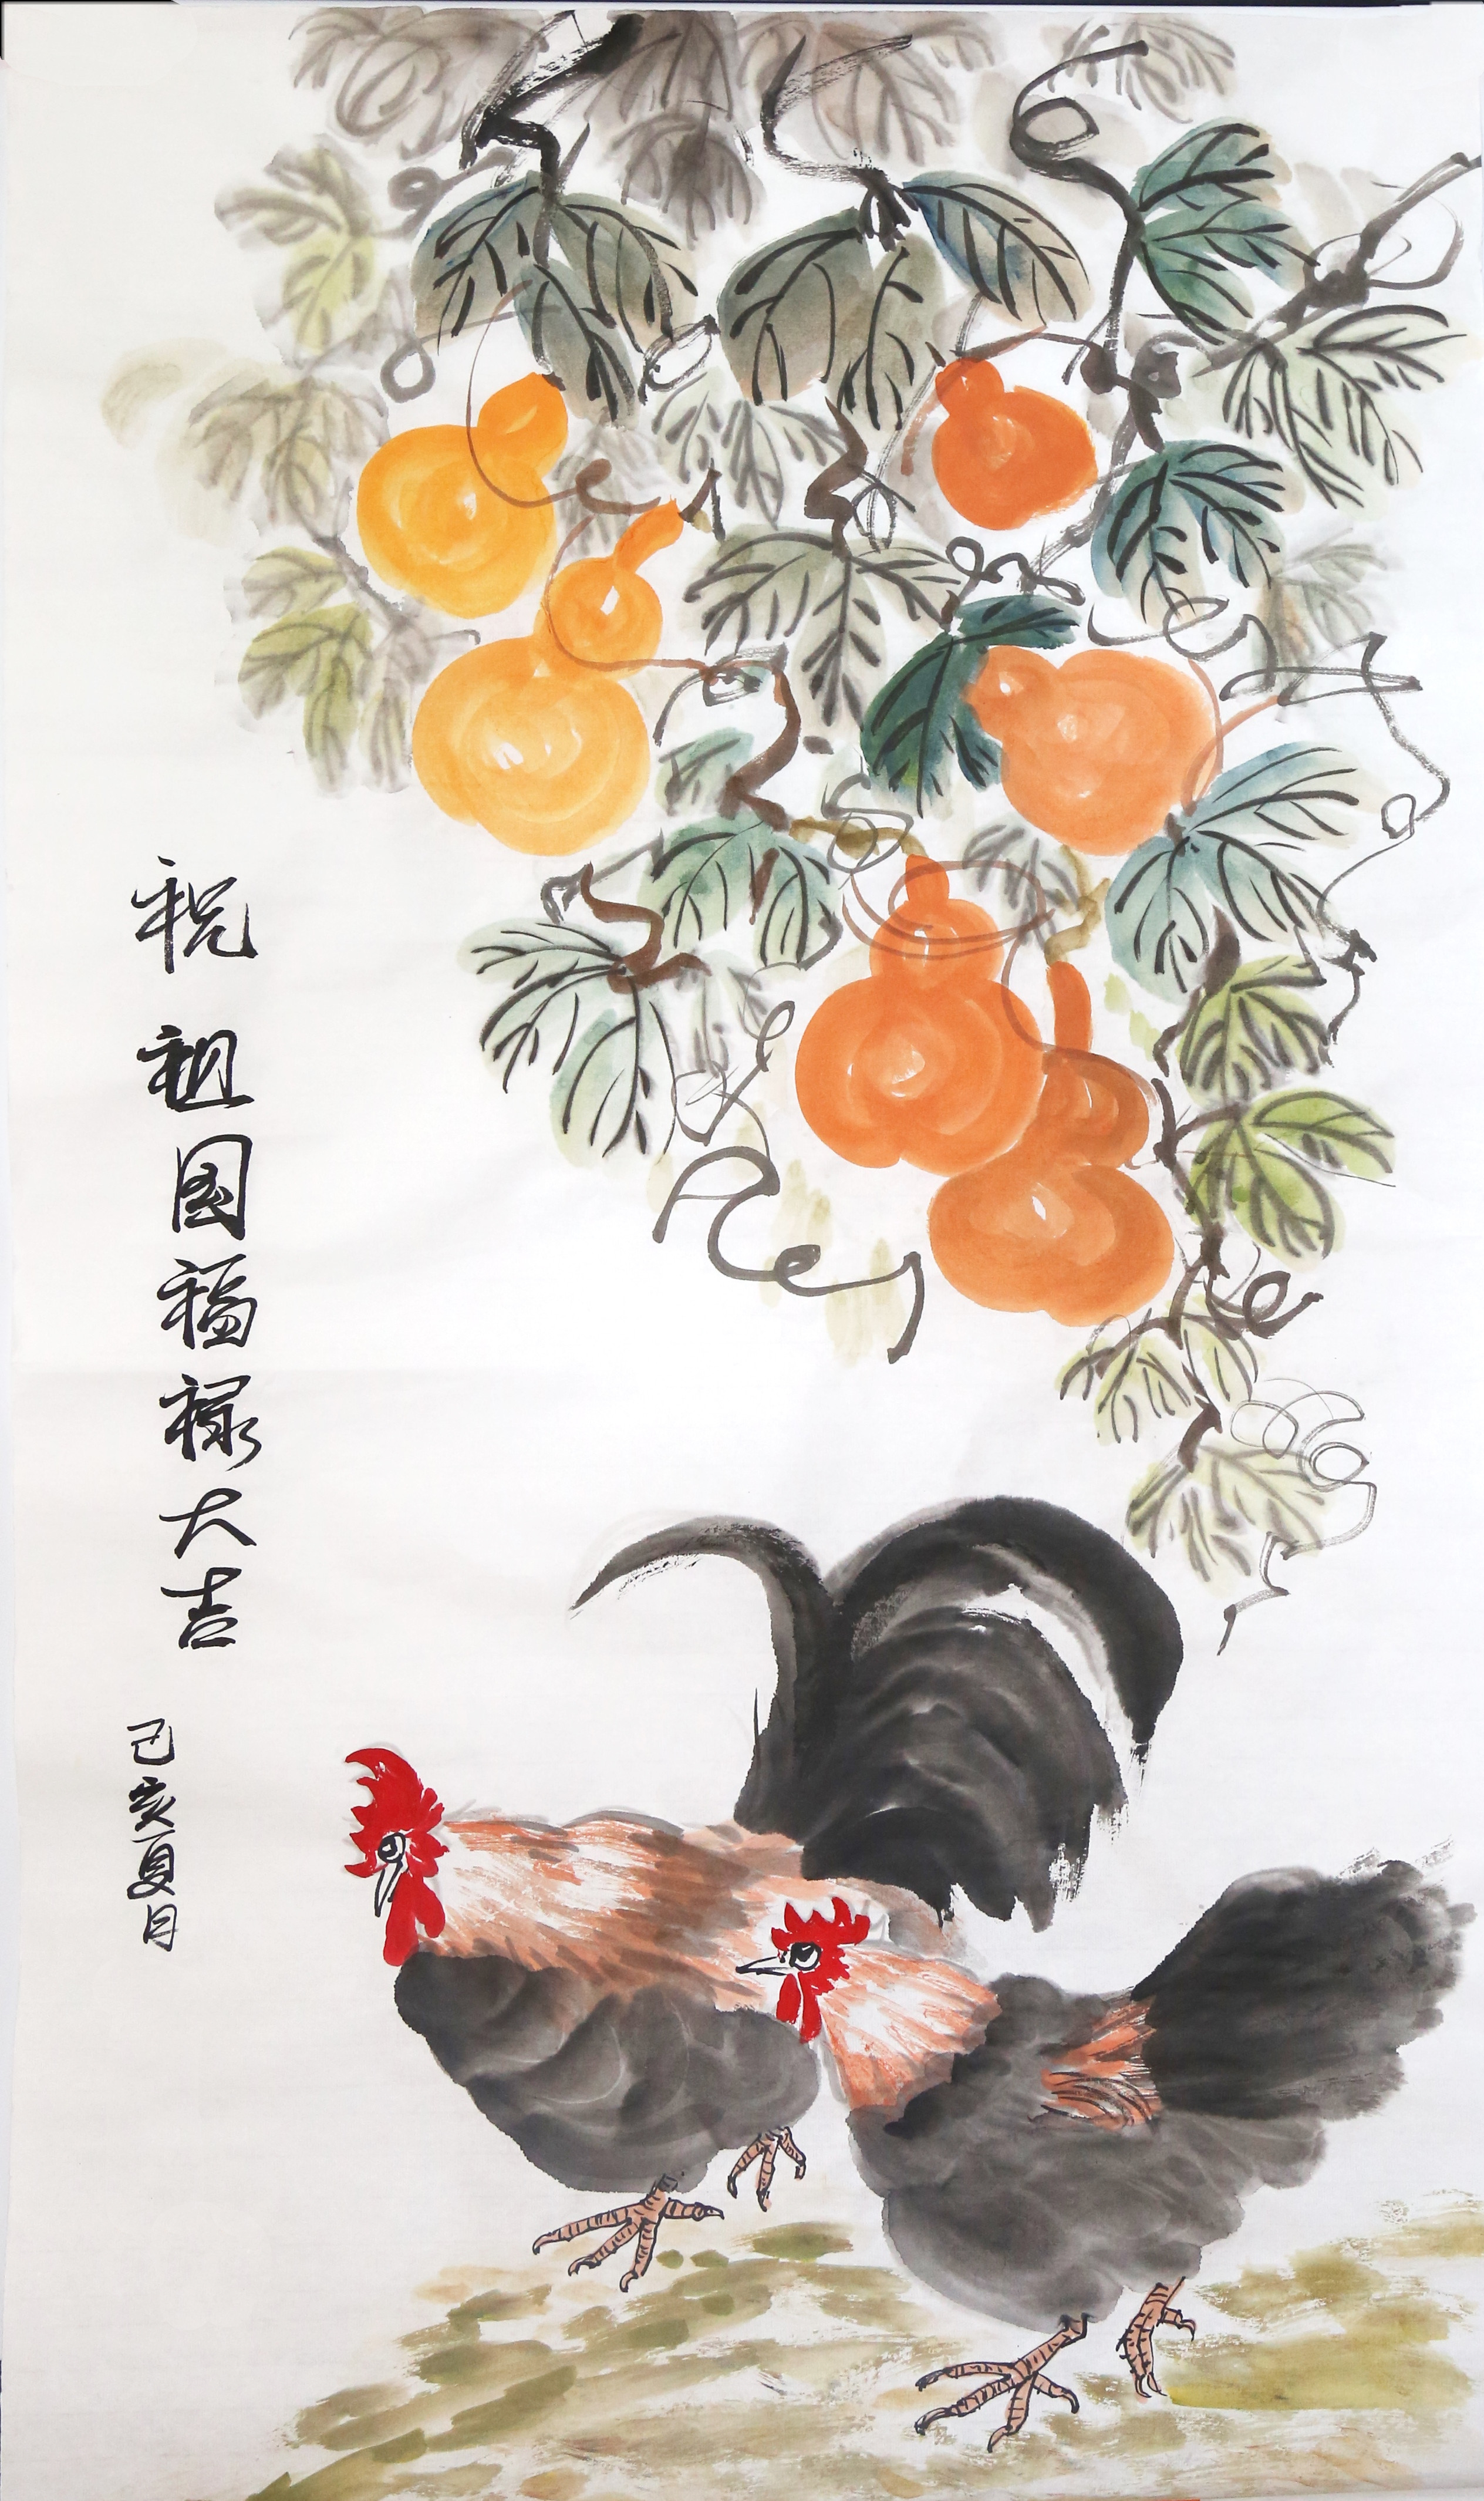 祝祖国福禄大吉
己亥夏月